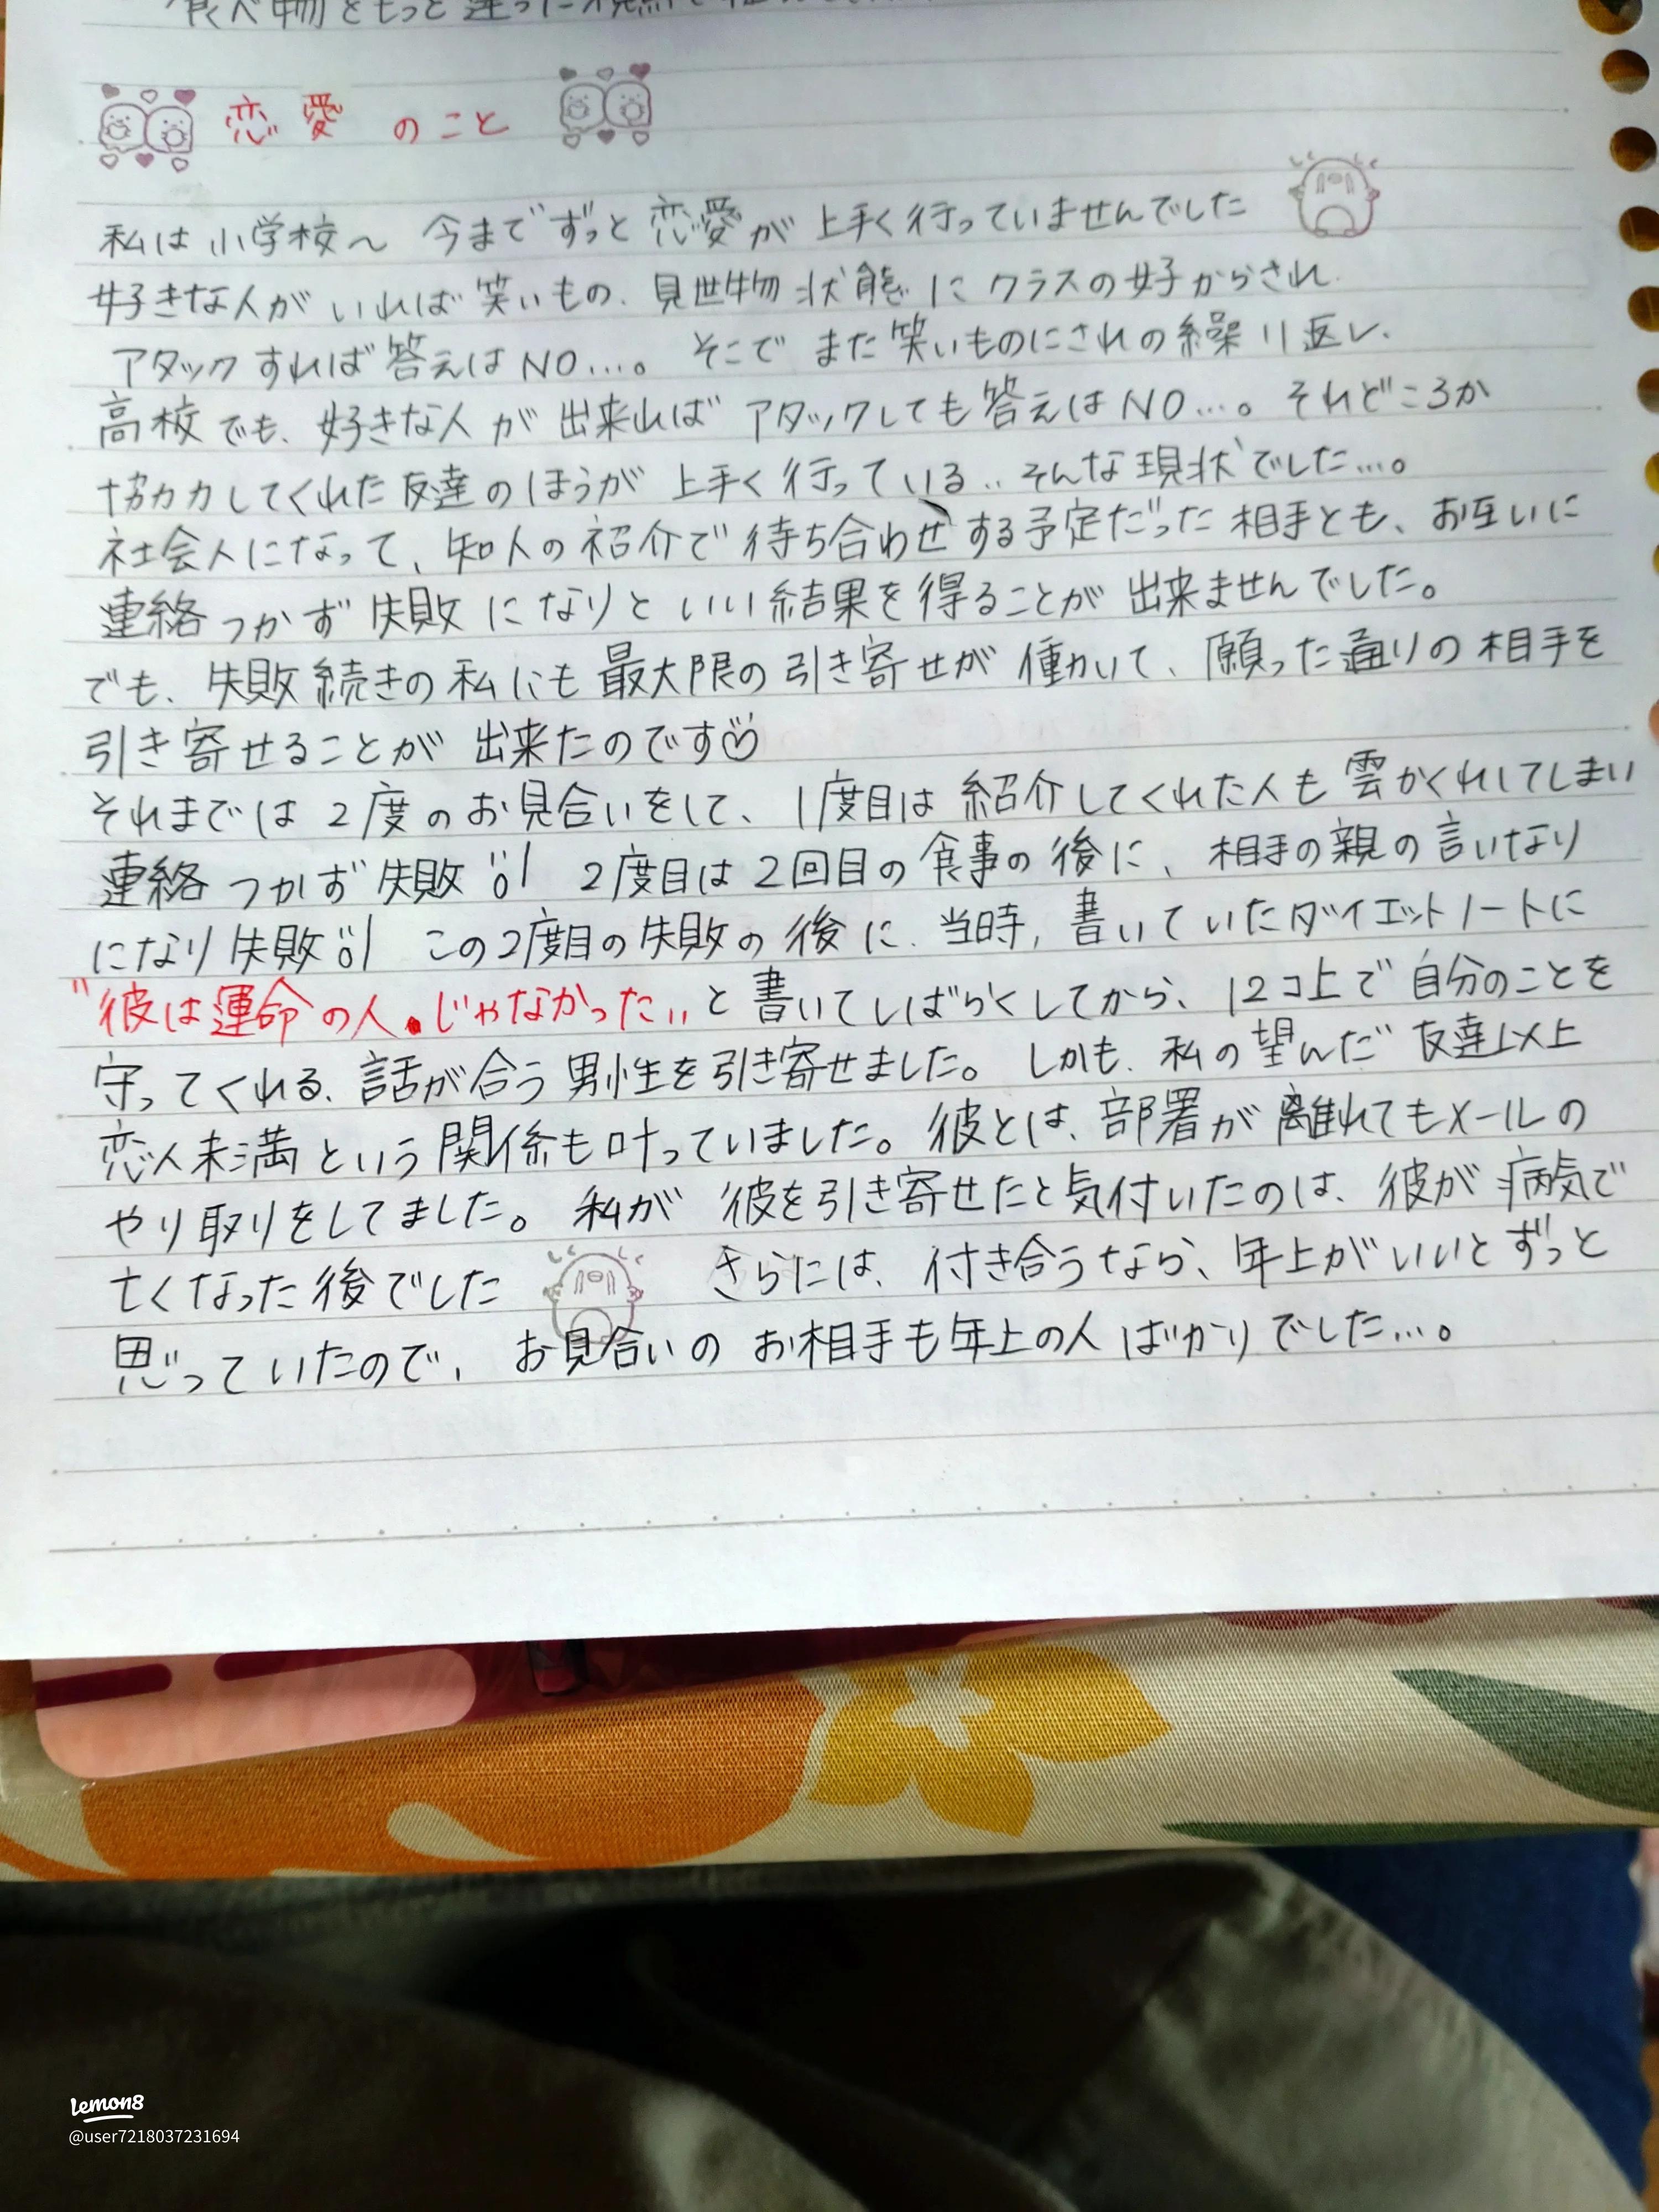 食べ物をもっと違った視点で
恋愛のこと
私は小学校〜 今までずっと恋愛が上手く行っていませんでした
好きな人がいれば笑いもの、見世物状態にクラスの女子からされ
アタックすれば答えはNO…。そこでまた笑いものにされの繰り返し、
高校でも、好きな人が出来ればアタックしても答えはNO…。それどころか
協力してくれた友達のほうが上手く行っている‥そんな現状でした…。
社会人になって、知人の紹介で待ち合わせする予定だった相手とも、お互いに
連絡つかず失敗になりといい結果を得ることが出来ませんでした。
でも、失敗続きの私にも最大限の引き寄せが働いて、願った通りの相手を
引き寄せることが出来たのです
それまでは2度のお見合いをして、1度目は紹介してくれた人も雲がくれしてしまい
連絡つかず失敗!! 2度目は2回目の食事の後に、相手の親の言いなり
になり失敗!! この2度目の失敗の後に、当時、書いていたダイエットノートに
"彼は運命の人。じゃなかった"と書いてしばらくしてから、12コ上で自分のことを
守ってくれる、話が合う男性を引き寄せました。しかも、私の望んだ友達以上
恋人未満という関係も叶っていました。彼とは、部署が離れてもメールの
やり取りをしてました。私が彼を引き寄せたと気付いたのは、彼が病気で
亡くなった後でした さらには、付き合うなら、年上がいいとずっと
思っていたので、お見合いのお相手も年上の人ばかりでした…。
Lemon8
@user7218037231694